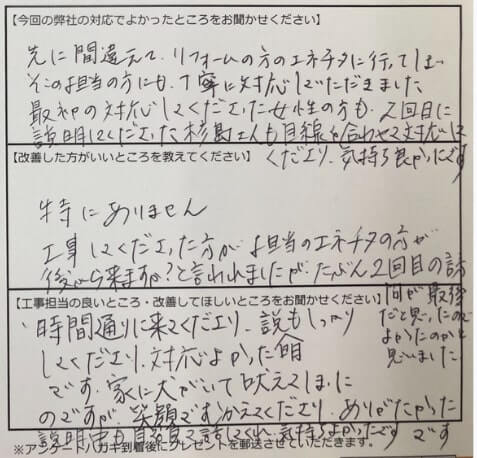 【今回の弊社の対応でよかったところをお聞かせください】
先に間違えて、リフォームの方のエネチタに行ってしまい
その担当の方にも、丁寧に対応していただきました
最初の対応してくださった女性の方も、2回目に
説明してくださった杉島さんも目線を合わせて対応して
くださり、気持ち良かったです
【改善した方がいいところを教えてください】
特にありません
工事してくださった方が、担当のエネチタの方が
後から来ますか?と言われましたが、たぶん2回目の訪
問が最後
だと思ったので
よかったのかと
思いました
【工事担当の良いところ・改善してほしいところをお聞かせください】
時間通りに来てくださり、説明もしっかり
してくださり、対応よかった
です。家に犬がいて吠えてしまった
のですが、笑顔でむかえてくださり、ありがたかった
です
説明中も目を見て話してくれ、気持ちよかったです
※アンケートハガキ到着後にプレゼントを郵送させていただきます。